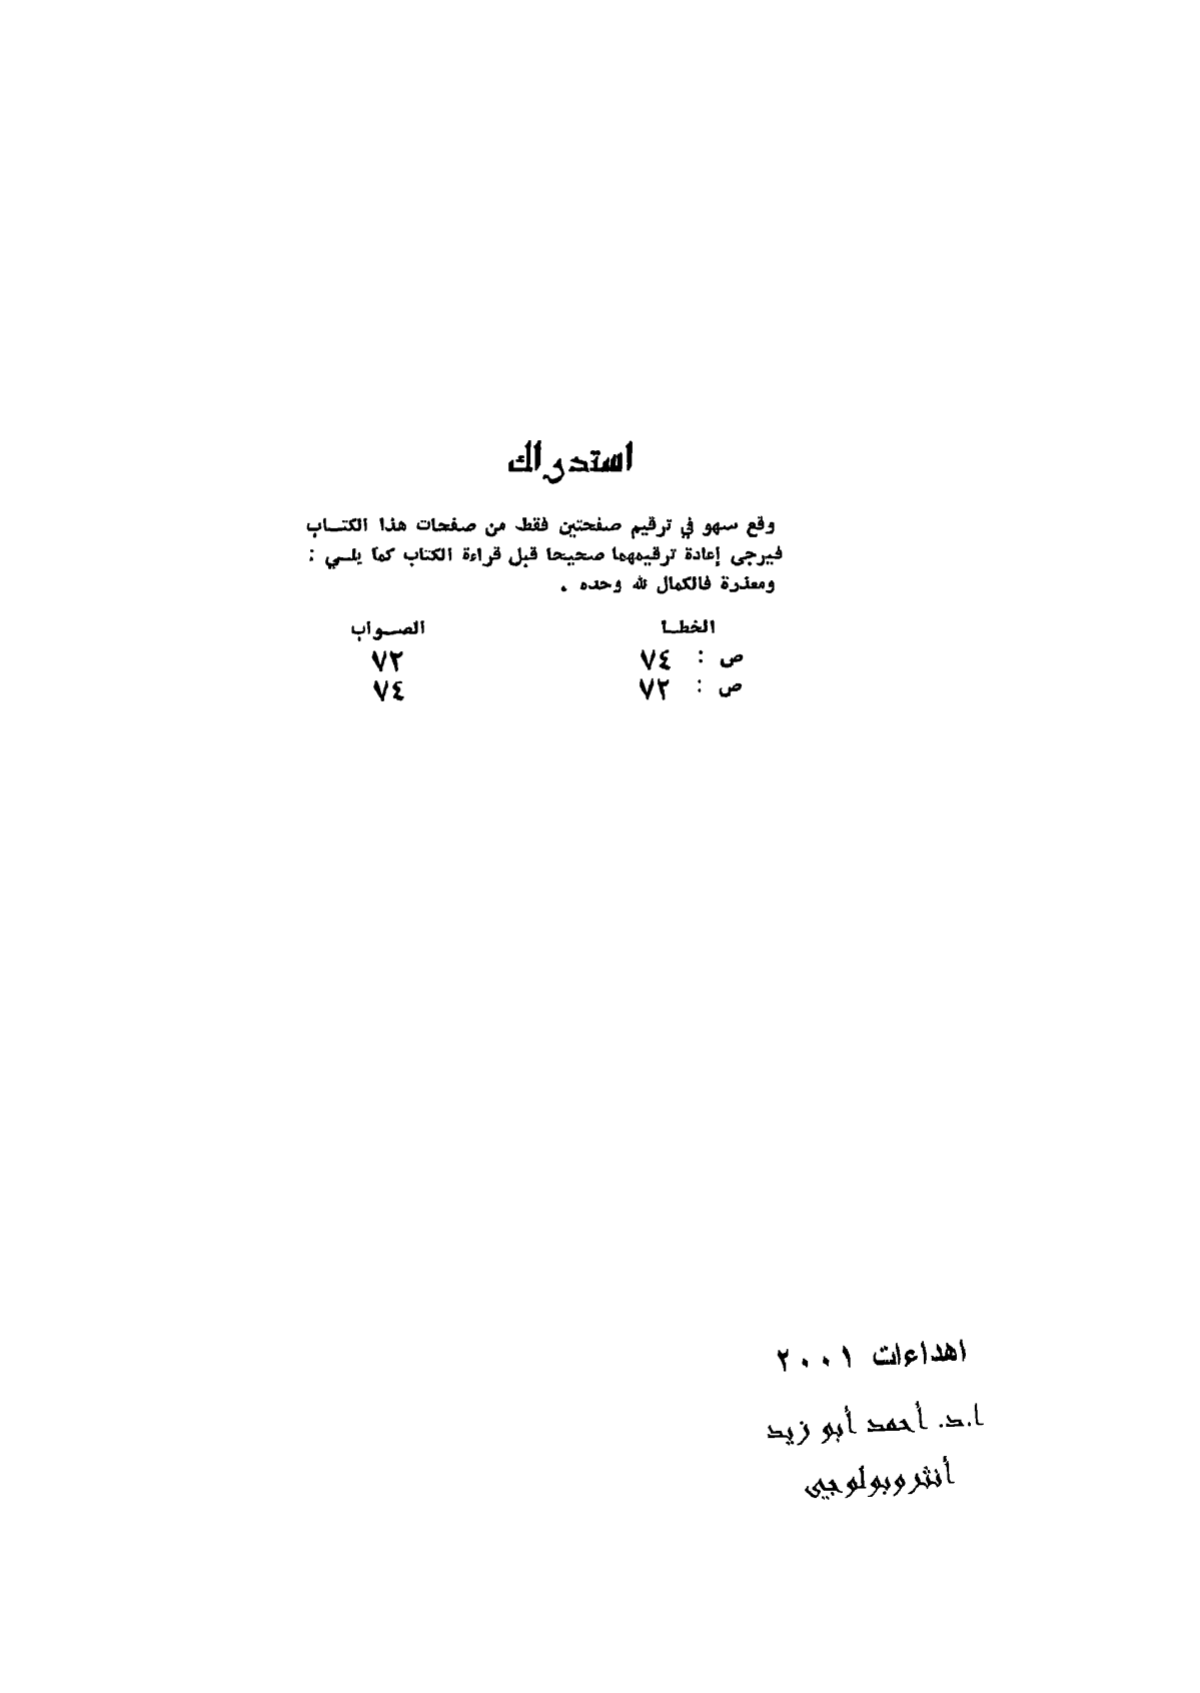 استدراك
وقع سهو في ترقيم صفحتين فقط من صفحات هذا الكتاب
فيرجى إعادة ترقيمهما صحيحا قبل قراءة الكتاب كما يلي :
ومعذرة فالكمال لله وحده .
الخطأ الصواب
ص : ٧٤ ٧٢
ص : ٧٢ ٧٤
اهداءات ٢٠٠١
ا.د. أحمد أبو زيد
أنثروبولوجي